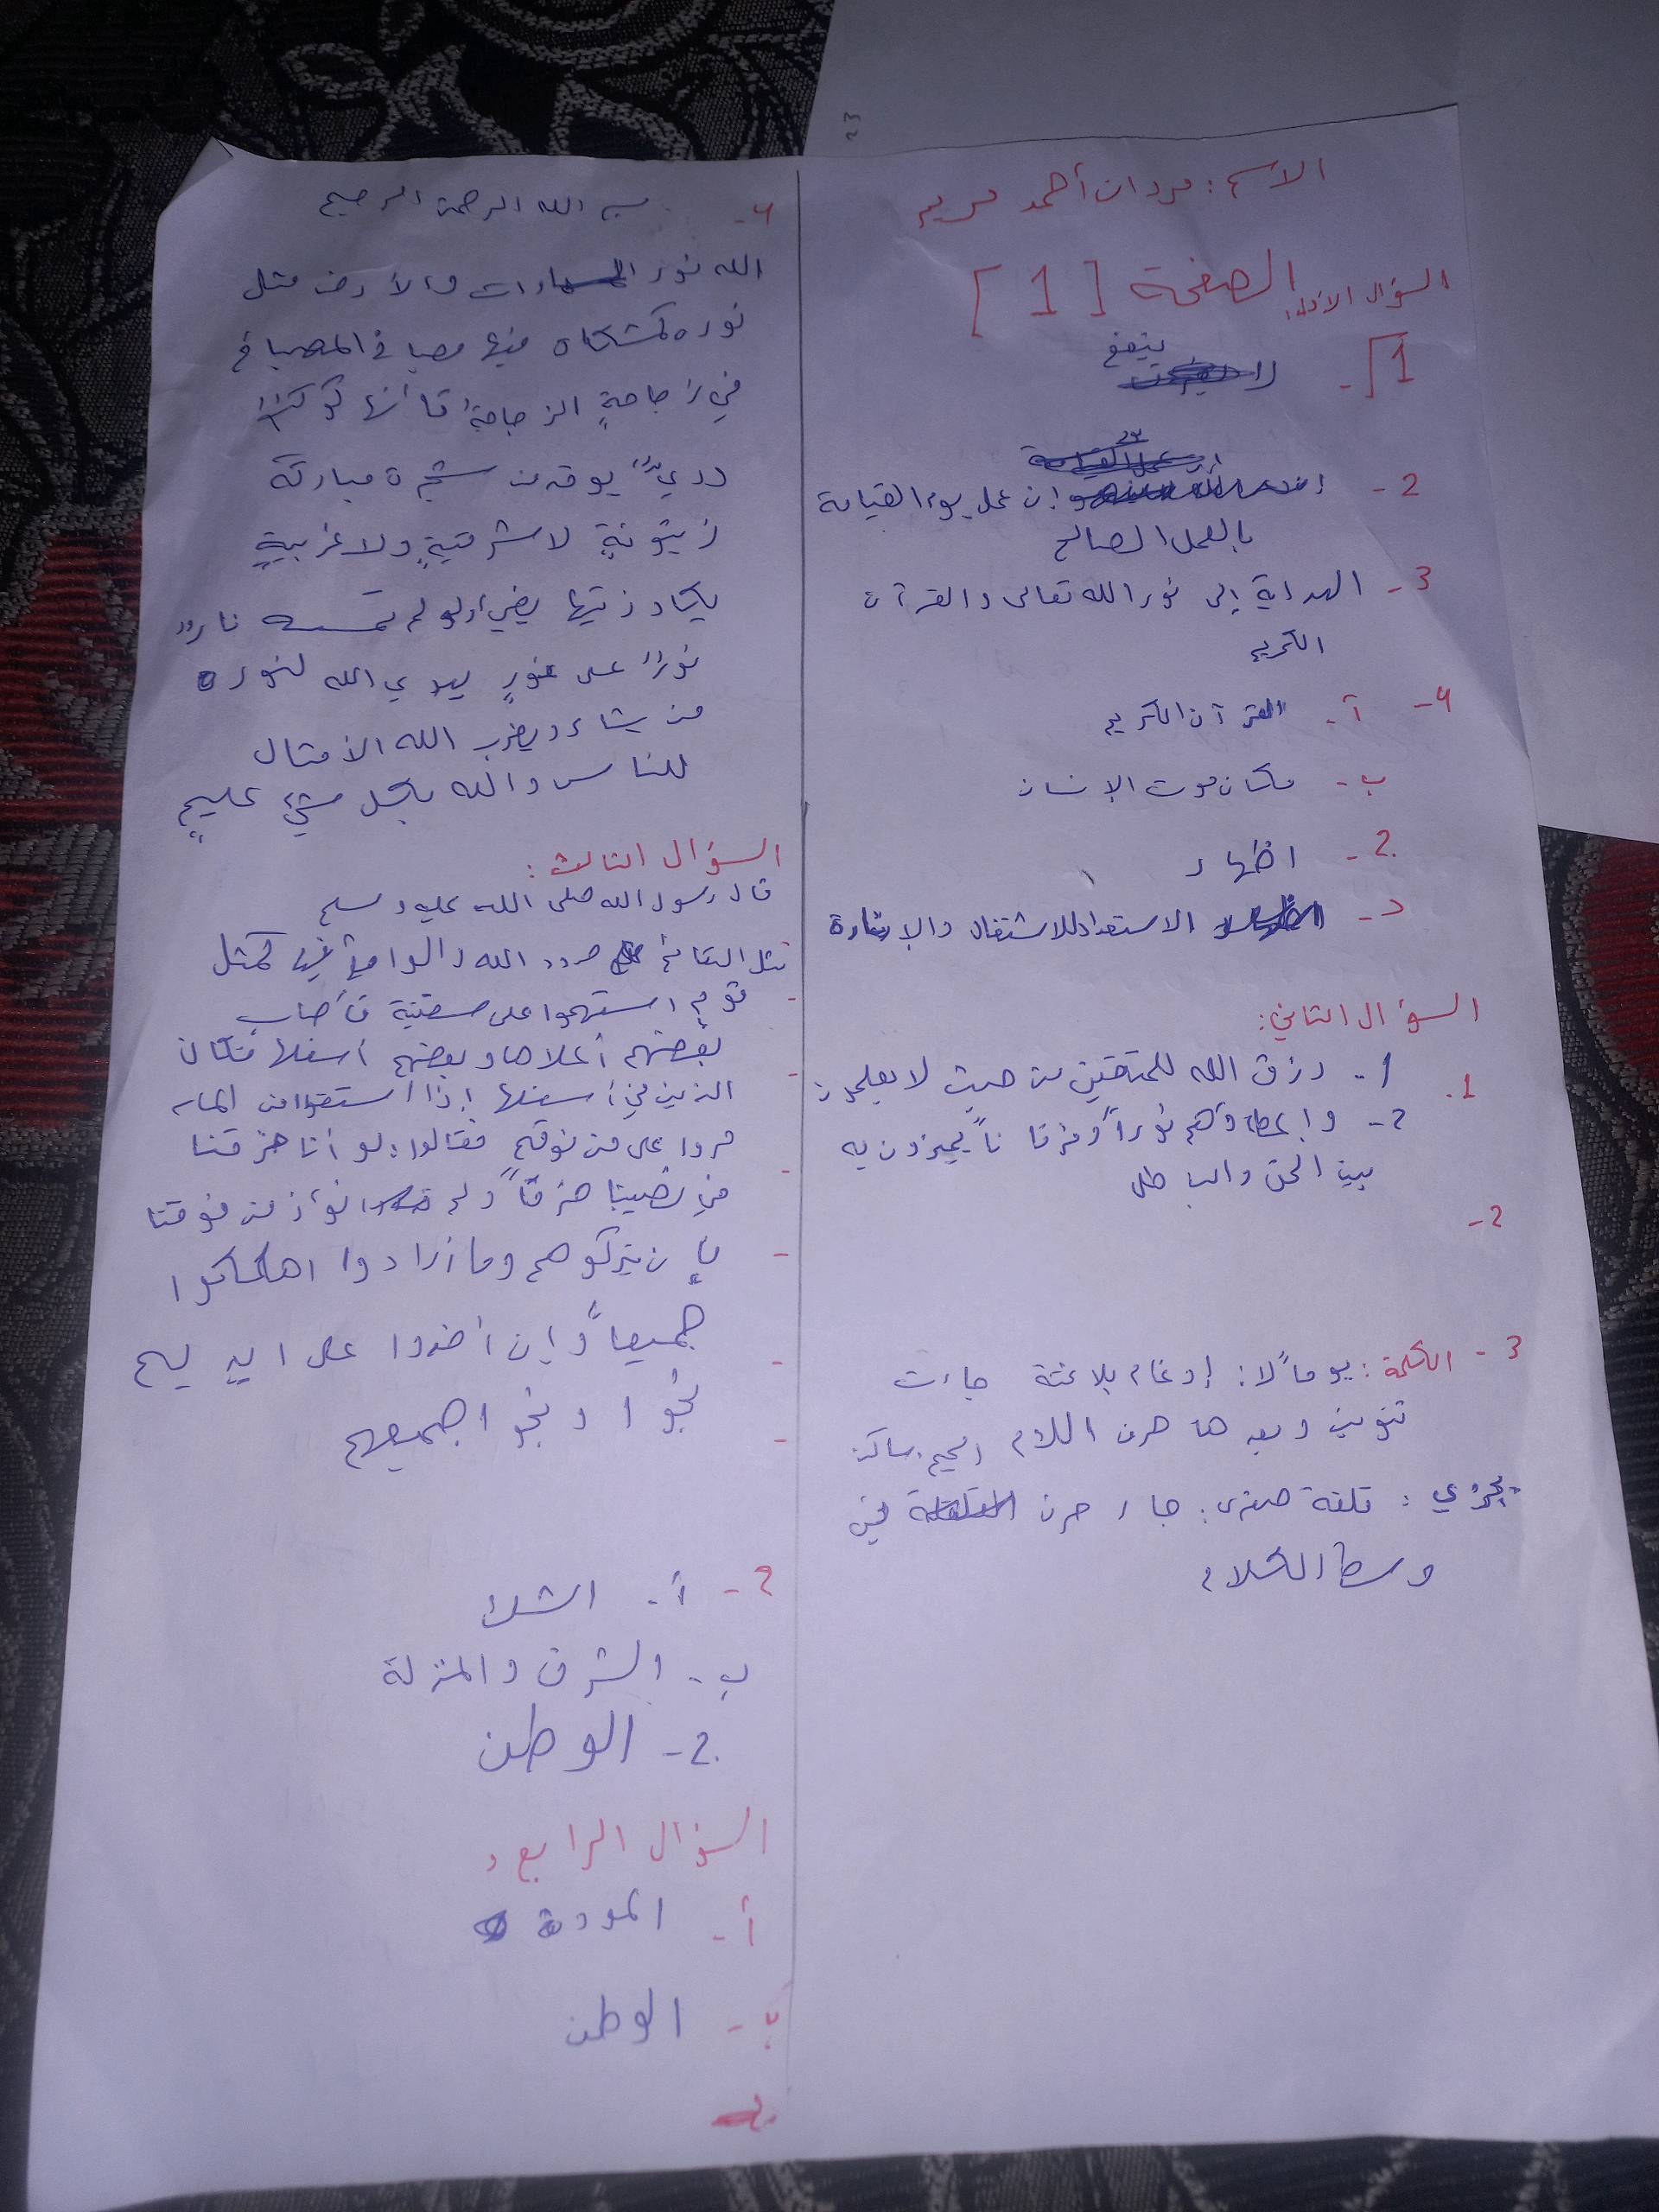 الاسم: مروان أحمد مريم
السؤال الأول: الصفحة [1]
1- لا ينفع
2- إن عمل يوم القيامة
بالعمل الصالح
3- الهداية إلى نور الله تعالى والقرآن
الكريم
4- أ- القرآن الكريم
ب- مكان موت الإنسان
2- اظهار
د- الاستعداد للاشتغال والإنارة
السؤال الثاني:
1. 1- رزق الله للمتقين من حيث لا يعلمون
2- وإعطاؤهم نوراً وفرقاناً يميزون به
بين الحق والباطل
2-
3- الكلمة: يوماً لا: إدغام بلا غنة جاءت
تنوين وبعدها حرف اللام
يجزي: قلقة صغرى: جاء حرف القلقلة في
وسط الكلام
4- بسم الله الرحمن الرحيم
الله نور السماوات والأرض مثل
نوره كمشكاه فيها مصباح المصباح
في زجاجةٍ الزجاجةُ كأنها كوكبٌ
دريٌّ يوقد من شجرة مباركة
زيتونةٍ لا شرقيةٍ ولا غربيةٍ
يكاد زيتها يضيء ولو لم تمسسه نارٌ
نورٌ على نورٍ يهدي الله لنوره
من يشاء ويضرب الله الأمثال
للناس والله بكل شيءٍ عليمٌ
السؤال الثالث:
قال رسول الله صلى الله عليه وسلم
مثل القائم حدود الله والواقع فيها كمثل
قوم استهموا على سفينة فأصاب
بعضهم أعلاها وبعضهم أسفلها فكان
الذين في أسفلها إذا استقوا من الماء
مروا على من فوقهم فقالوا: لو أنا خرقنا
في نصيبنا خرقاً ولم نؤذ من فوقنا
فإن يتركوهم وما أرادوا اهلكوا
جميعاً وإن أخذوا على ايديهم
نجوا ونجوا جميعهم
2- أ. الشك
ب. الشرف والمنزلة
2- الوطن
السؤال الرابع:
أ- المودة
ب- الوطن
2-